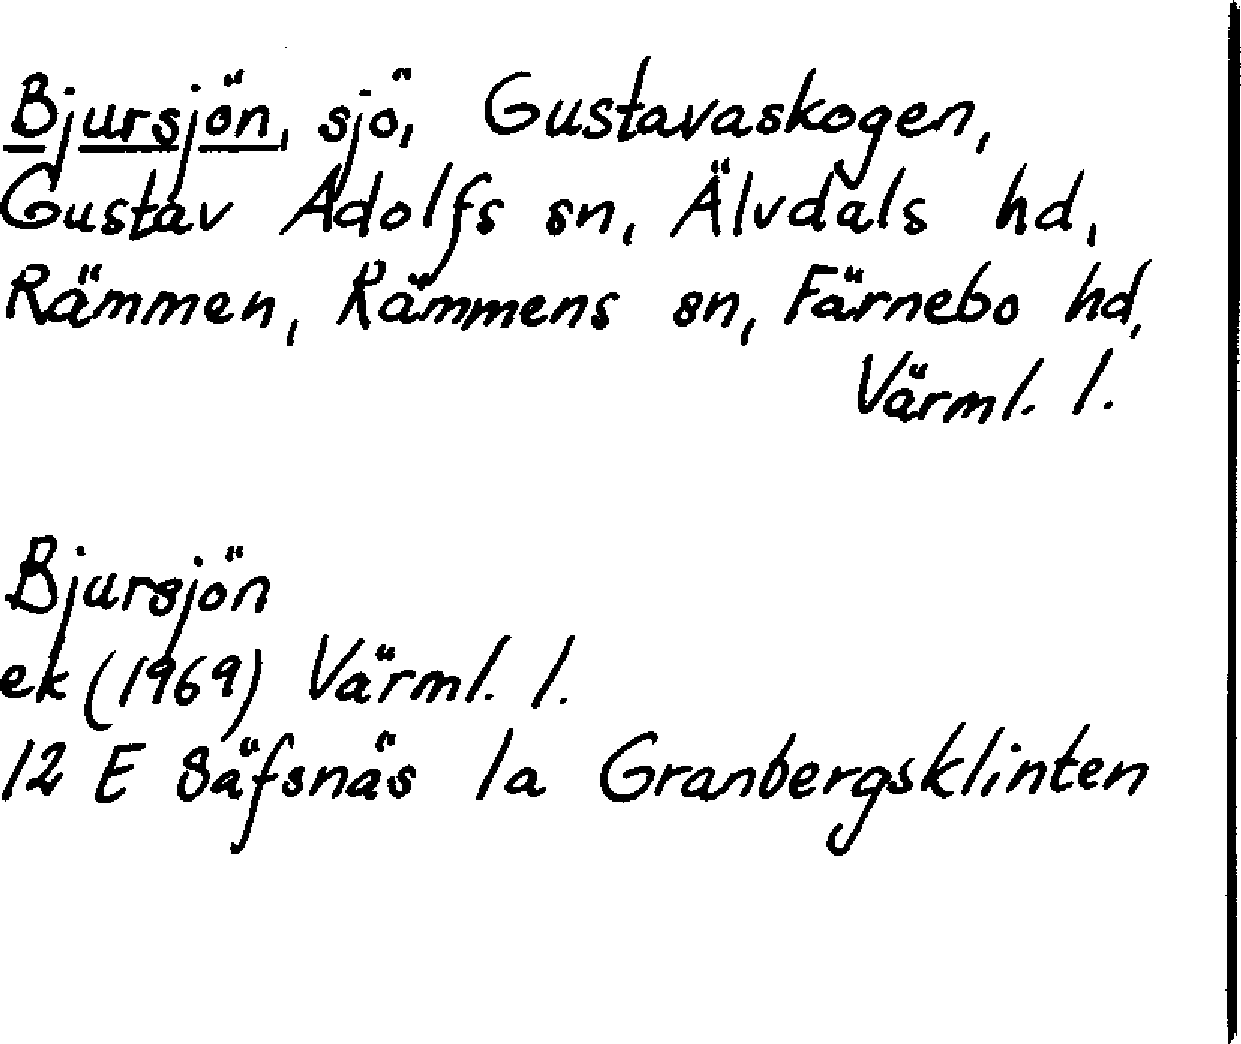 Bjursjön, sjö, Gustavaskogen,
Gustav Adolfs sn, Älvdals hd,
Rämmen, Rämmens sn, Färnebo hd,
Värml. l.
Bjursjön
ek (1969) Värml. l.
12 E Säfsnäs 1a Granbergsklinten